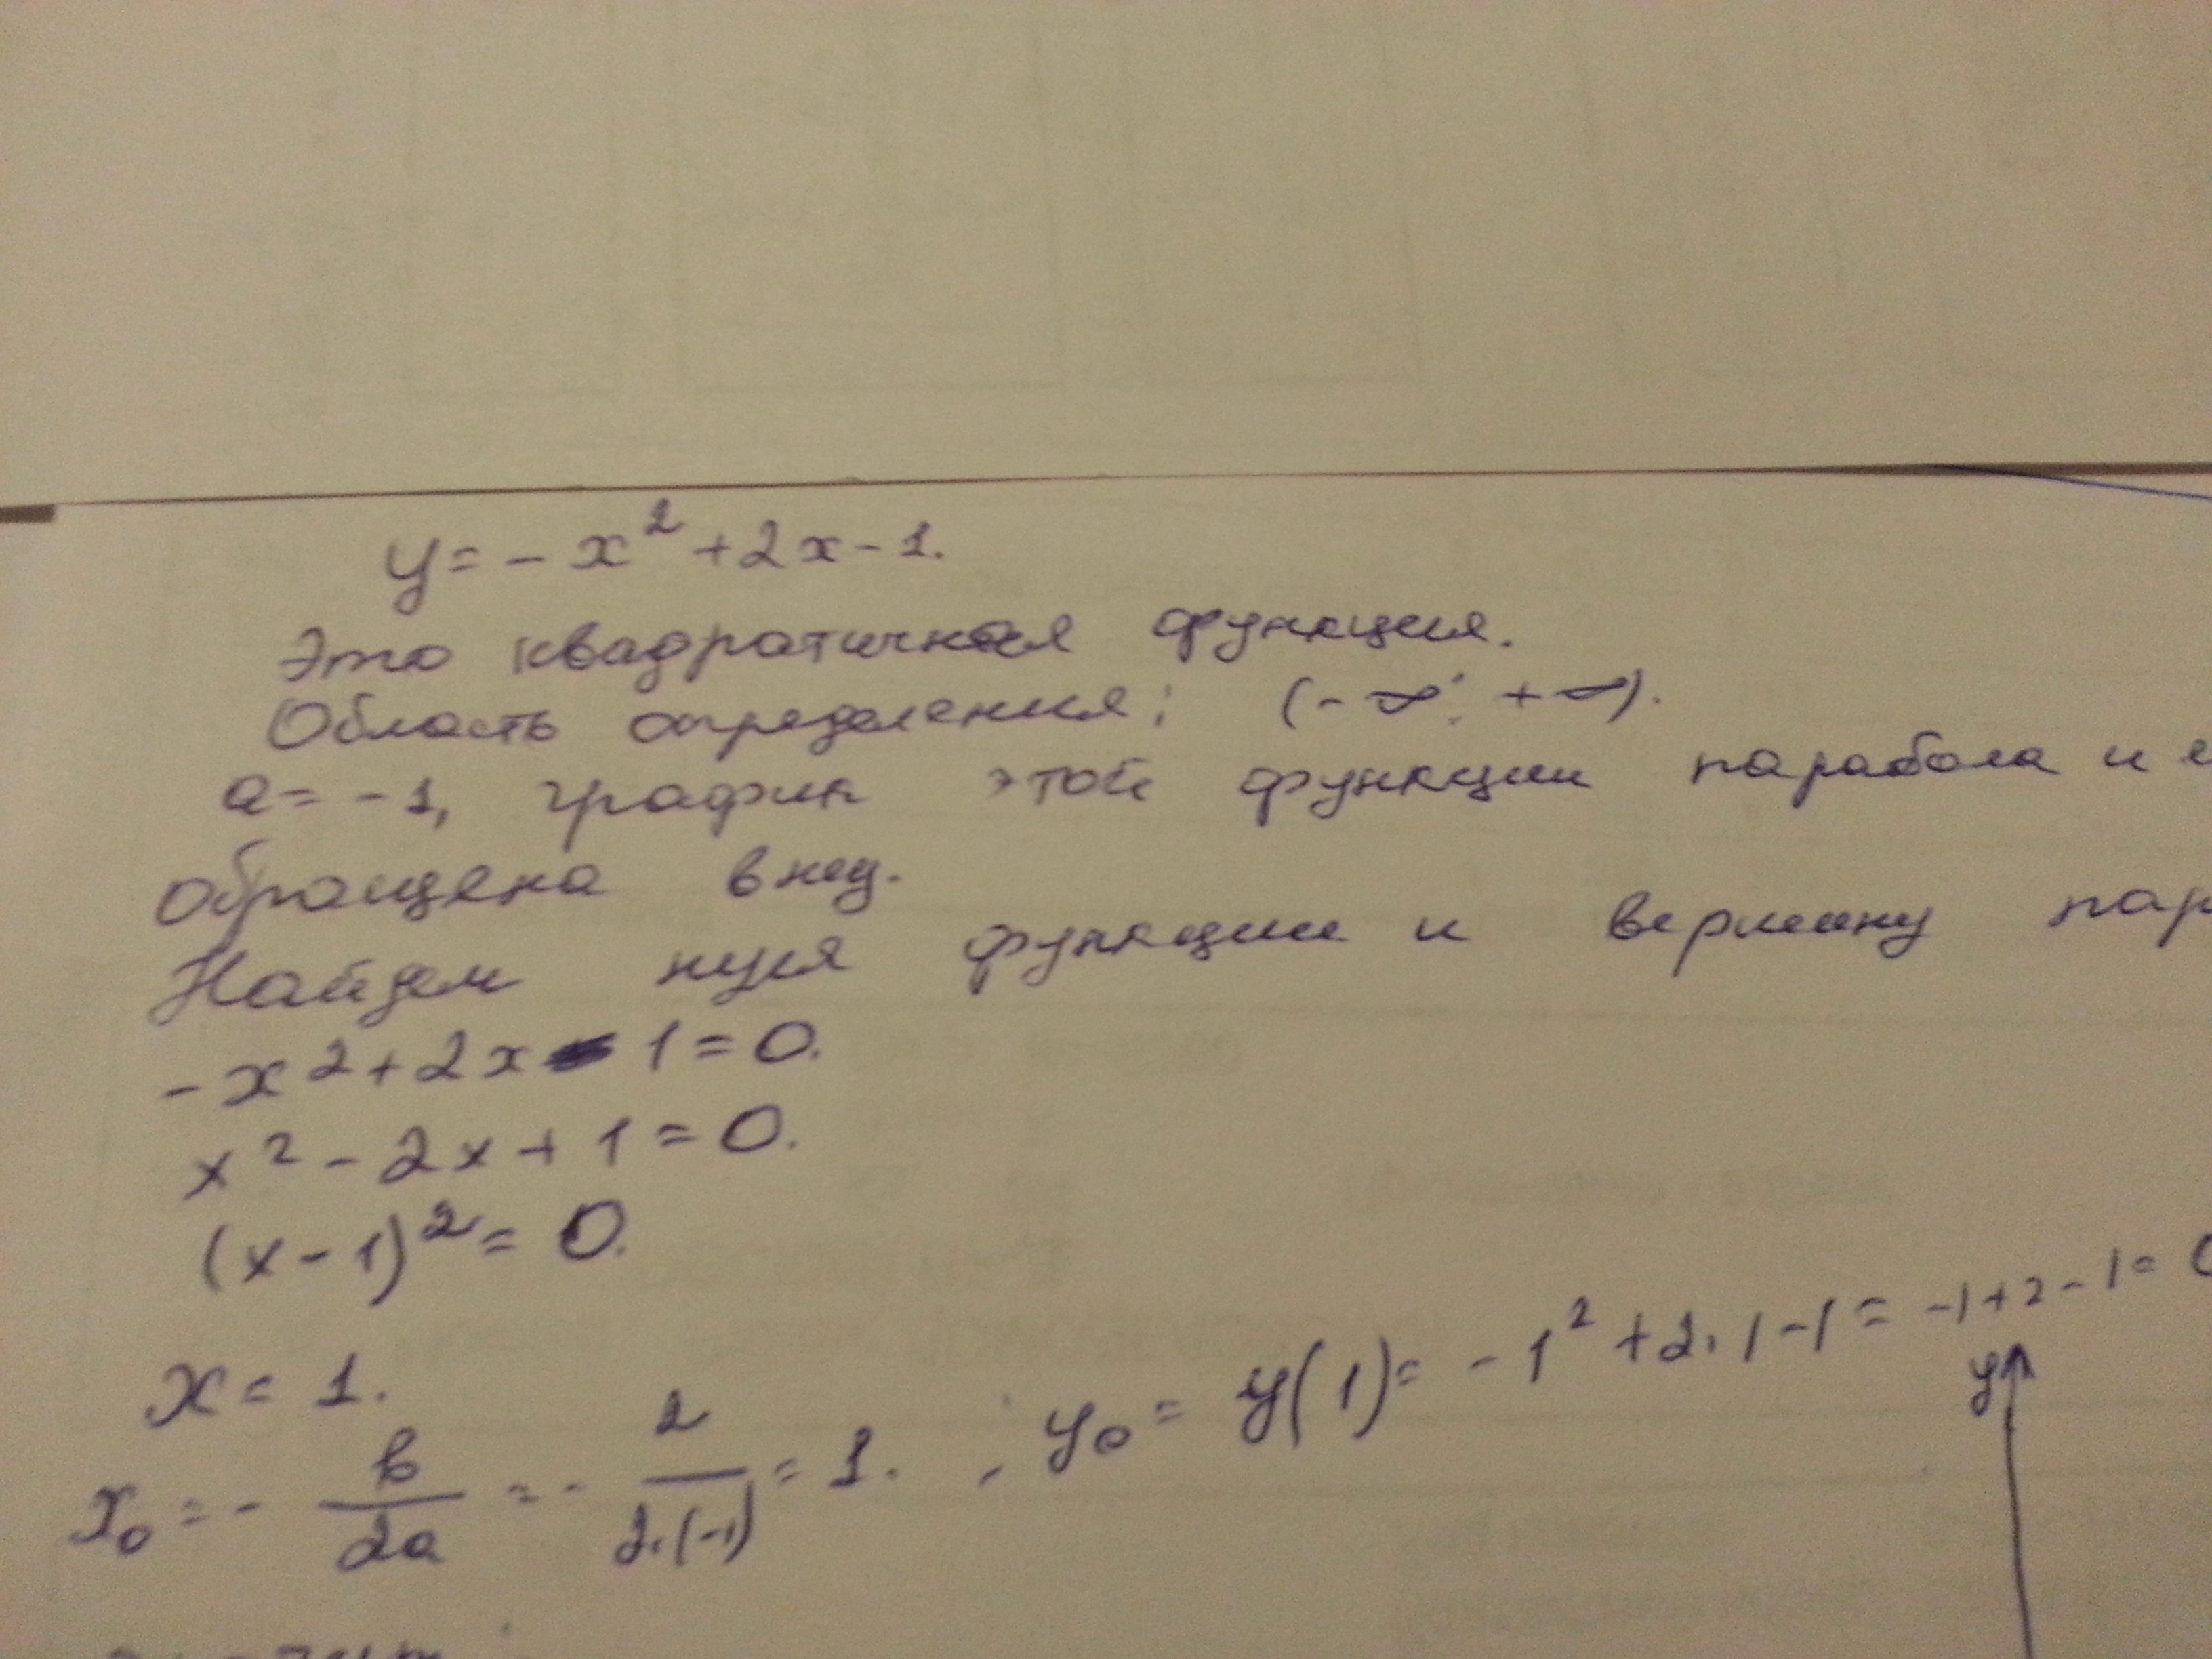 y = - x² + 2x - 1.
Это квадратичная функция.
Область определения: (-∞; +∞).
a = -1, график этой функции парабола и
обращена вниз.
Найдем нуля функции и вершину пар
-x² + 2x - 1 = 0.
x² - 2x + 1 = 0.
(x - 1)² = 0.
x = 1.
x₀ = - в/2a = - 2/2·(-1) = 1. , y₀ = y(1) = -1² + 2·1 - 1 = -1 + 2 - 1 = 0
y